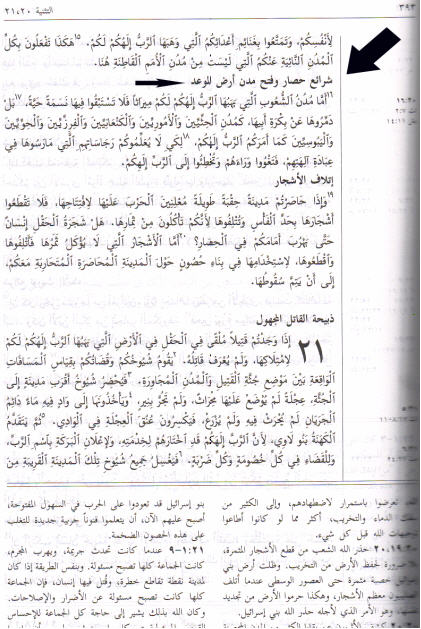 ٣٩٣
التثنية ٢٠، ٢١
لِأَنْفُسِكُمْ، وَتَمَتَّعُوا بِغَنَائِمِ أَعْدَائِكُمُ الَّتِي وَهَبَهَا الرَّبُّ إِلَهُكُمْ لَكُمْ. ¹⁵هَكَذَا تَفْعَلُونَ بِكُلِّ
الْمُدُنِ النَّائِيَةِ عَنْكُمُ الَّتِي لَيْسَتْ مِنْ مُدُنِ الْأُمَمِ الْقَاطِنَةِ هُنَا.
شرائع حصار وفتح مدن أرض الموعد
¹⁶أَمَّا مُدُنُ الشُّعُوبِ الَّتِي يَهَبُهَا الرَّبُّ إِلَهُكُمْ لَكُمْ مِيرَاثاً فَلَا تَسْتَبْقُوا فِيهَا نَسَمَةً حَيَّةً، ¹⁷بَلْ
دَمِّرُوهَا عَنْ بِكْرَةِ أَبِيهَا، كَمُدُنِ الْحِثِّيِّينَ وَالْأَمُورِيِّينَ وَالْكَنْعَانِيِّينَ وَالْفِرِزِّيِّينَ وَالْحِوِّيِّينَ
وَالْيَبُوسِيِّينَ كَمَا أَمَرَكُمُ الرَّبُّ إِلَهُكُمْ، ¹⁸لِكَيْ لَا يُعَلِّمُوكُمْ رَجَاسَاتِهِمِ الَّتِي مَارَسُوهَا فِي
عِبَادَةِ آلِهَتِهِمْ، فَتَغْوُوا وَرَاءَهُمْ وَتُخْطِئُوا إِلَى الرَّبِّ إِلَهِكُمْ.
إتلاف الأشجار
¹⁹وَإِذَا حَاصَرْتُمْ مَدِينَةً حِقْبَةً طَوِيلَةً مُعْلِنِينَ الْحَرْبَ عَلَيْهَا لِافْتِتَاحِهَا، فَلَا تَقْطَعُوا
أَشْجَارَهَا بِحَدِّ الْفَأْسِ وَتُتْلِفُوهَا لِأَنَّكُمْ تَأْكُلُونَ مِنْ ثِمَارِهَا. هَلْ شَجَرَةُ الْحَقْلِ إِنْسَانٌ
حَتَّى يَهْرُبَ أَمَامَكُمْ فِي الْحِصَارِ؟ ²⁰أَمَّا الْأَشْجَارُ الَّتِي لَا يُؤْكَلُ ثَمَرُهَا فَأَتْلِفُوهَا
وَاقْطَعُوهَا، لِاسْتِخْدَامِهَا فِي بِنَاءِ حُصُونٍ حَوْلَ الْمَدِينَةِ الْمُحَاصَرَةِ الْمُتَحَارِبَةِ مَعَكُمْ،
إِلَى أَنْ يَتِمَّ سُقُوطُهَا.
ذبيحة القاتل المجهول
٢١ إِذَا وَجَدْتُمْ قَتِيلاً مُلْقًى فِي الْحَقْلِ فِي الْأَرْضِ الَّتِي يَهَبُهَا الرَّبُّ إِلَهُكُمْ لَكُمْ
لِامْتِلَاكِهَا، وَلَمْ يُعْرَفْ قَاتِلُهُ. ²يَقُومُ شُيُوخُكُمْ وَقُضَاتُكُمْ بِقِيَاسِ الْمَسَافَاتِ
الْوَاقِعَةِ بَيْنَ مَوْضِعِ جُثَّةِ الْقَتِيلِ وَالْمُدُنِ الْمُجَاوِرَةِ. ³فَيُحْضِرُ شُيُوخُ أَقْرَبِ مَدِينَةٍ إِلَى
الْجُثَّةِ، عِجْلَةً لَمْ يُوضَعْ عَلَيْهَا مِحْرَاثٌ، وَلَمْ تَجُرَّ بِنِيرٍ، ⁴وَيَأْخُذُونَهَا إِلَى وَادٍ فِيهِ مَاءٌ دَائِمُ
الْجَرَيَانِ لَمْ يُحْرَثْ فِيهِ وَلَمْ يُزْرَعْ، فَيَكْسِرُونَ عُنُقَ الْعِجْلَةِ فِي الْوَادِي. ⁵ثُمَّ يَتَقَدَّمُ
الْكَهَنَةُ بَنُو لَاوِي، لِأَنَّ الرَّبَّ إِلَهَكُمْ قَدِ اخْتَارَهُمْ لِخِدْمَتِهِ، وَلِإِعْلَانِ الْبَرَكَةِ بِاسْمِ الرَّبِّ،
وَلِلْقَضَاءِ فِي كُلِّ خُصُومَةٍ وَكُلِّ ضَرْبَةٍ. ⁶فَيَغْسِلُ جَمِيعُ شُيُوخِ تِلْكَ الْمَدِينَةِ الْقَرِيبَةِ مِنَ
تعرضوا باستمرار لاضطهادهم، وإلى الكثير من
الدماء والتخريب، أكثر مما لو كانوا أطاعوا
الله قبل كل شيء.
٢٠:١٩، ٢٠ حذر الله الشعب من قطع الأشجار المثمرة،
لحفظ الأرض من التخريب. وظلت أرض بني
خصبة مثمرة حتى العصور الوسطى عندما أتلف
معظم الأشجار، وهكذا حرموا الأرض من تجديد
وهو الأمر الذي لأجله حذر الله بني إسرائيل.
بنو إسرائيل قد تعودوا على الحرب في السهول المفتوحة،
أصبح عليهم الآن، أن يتعلموا فنوناً حربية جديدة للتغلب
على هذه الحصون الضخمة.
٢١:١-٩ عندما كانت تحدث جريمة، ويهرب المجرم،
كانت الجماعة كلها تصبح مسئولة. وبنفس الطريقة إذا كان
لمدينة نقطة تقاطع خطرة، وقُتل فيها إنسان، فإن الجماعة
كلها كانت تصبح مسئولة عن الأضرار والإصلاحات.
وكان الله بذلك يشير إلى حاجة كل الجماعة للإحساس